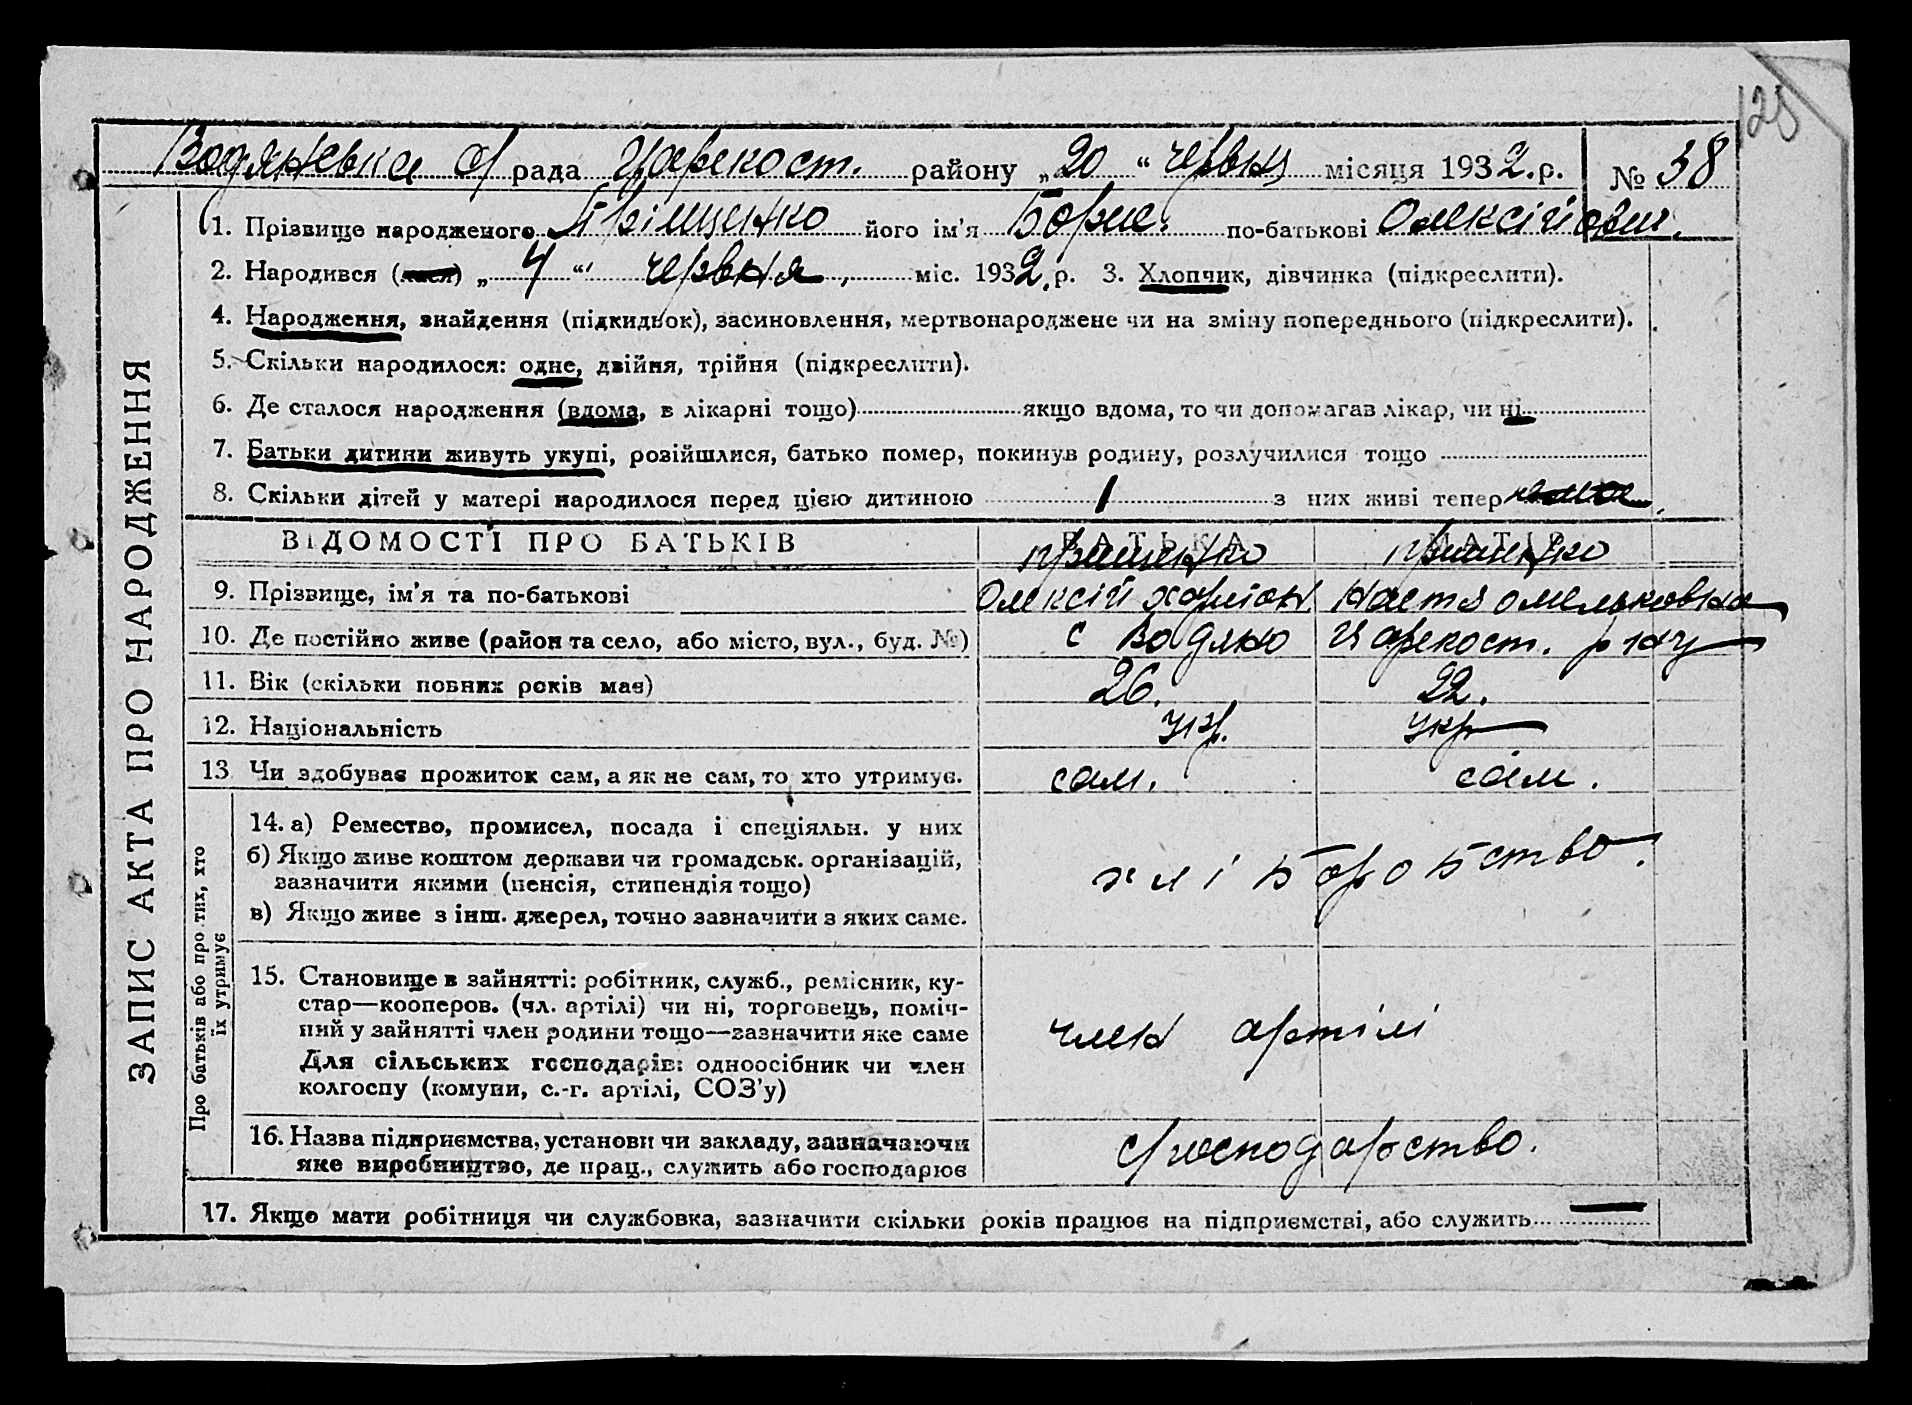 125
Водянська с/рада Царекост. району „20“ червня місяця 1932.р. № 38
1. Прізвище народженого Прищенко його ім'я Борис. по-батькові Олексійович.
2. Народився (лася) „4“ червня, міс. 1932.р. 3. Хлопчик, дівчинка (підкреслити).
4. Народження, знайдення (підкидьок), засиновлення, мертвонароджене чи на зміну попереднього (підкреслити).
5. Скільки народилося: одне, двійня, трійня (підкреслити).
6. Де сталося народження (вдома, в лікарні тощо) якщо вдома, то чи допомагав лікар, чи ні
7. Батьки дитини живуть укупі, розійшлися, батько помер, покинув родину, розлучилися тощо
8. Скільки дітей у матері народилося перед цією дитиною 1 з них живі тепер
ВІДОМОСТІ ПРО БАТЬКІВ БАТЬКА МАТІР
Прищенко Прищенко
9. Прізвище, ім'я та по-батькові Олексій Харітон Настя Омельковна
10. Де постійно живе (район та село, або місто, вул., буд. №) с Водяно Царекост. р-ну
11. Вік (скільки повних років має) 26. 22.
12. Національність Укр. Укр
13 Чи здобуває прожиток сам, а як не сам, то хто утримує. сам. сам.
Про батьків або про тих, хто їх утримує
14. а) Ремество, промисел, посада і спеціяльн. у них
б) Якщо живе коштом держави чи громадськ. організацій,
зазначити якими (пенсія, стипендія тощо)
в) Якщо живе з інш. джерел, точно зазначити з яких саме.
хліборобство.
15. Становище в зайнятті: робітник, служб., ремісник, ку-
стар—кооперов. (чл. артілі) чи ні, торговець, поміч-
ний у зайнятті член родини тощо—зазначити яке саме
Для сільських господарів: одноосібник чи член
колгоспу (комуни, с.-г. артілі, СОЗ'у)
член артілі
16. Назва підприємства, установи чи закладу, зазначаючи
яке виробництво, де прац., служить або господарює
с/господарство.
17. Якщо мати робітниця чи службовка, зазначити скільки років працює на підприємстві, або служить —
ЗАПИС АКТА ПРО НАРОДЖЕННЯ